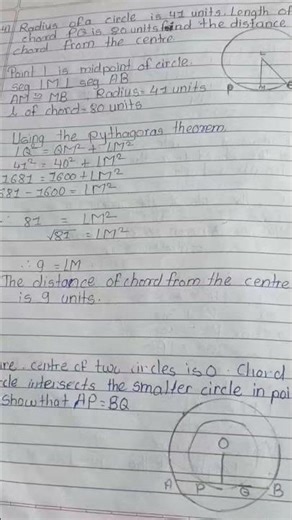 Radius of a circle is 41 units. Length of
chord PQ is 80 units find the distance
chord from the centre
Point I is midpoint of circle.
seg IM | seg AB
AM = MB Radius = 41 units
l of chord = 80 units
Using the pythagoras theorem
IQ² = QM² + IM²
41² = 40² + IM²
1681 = 1600 + IM²
681 - 1600 = IM²
∴ 81 = IM²
√81 = IM²
∴ 9 = IM
The distance of chord from the centre
is 9 units.
are centre of two circles is O. Chord
cle intersects the smaller circle in poi
show that AP = BQ
I
P
M
O
A
P
Q
B